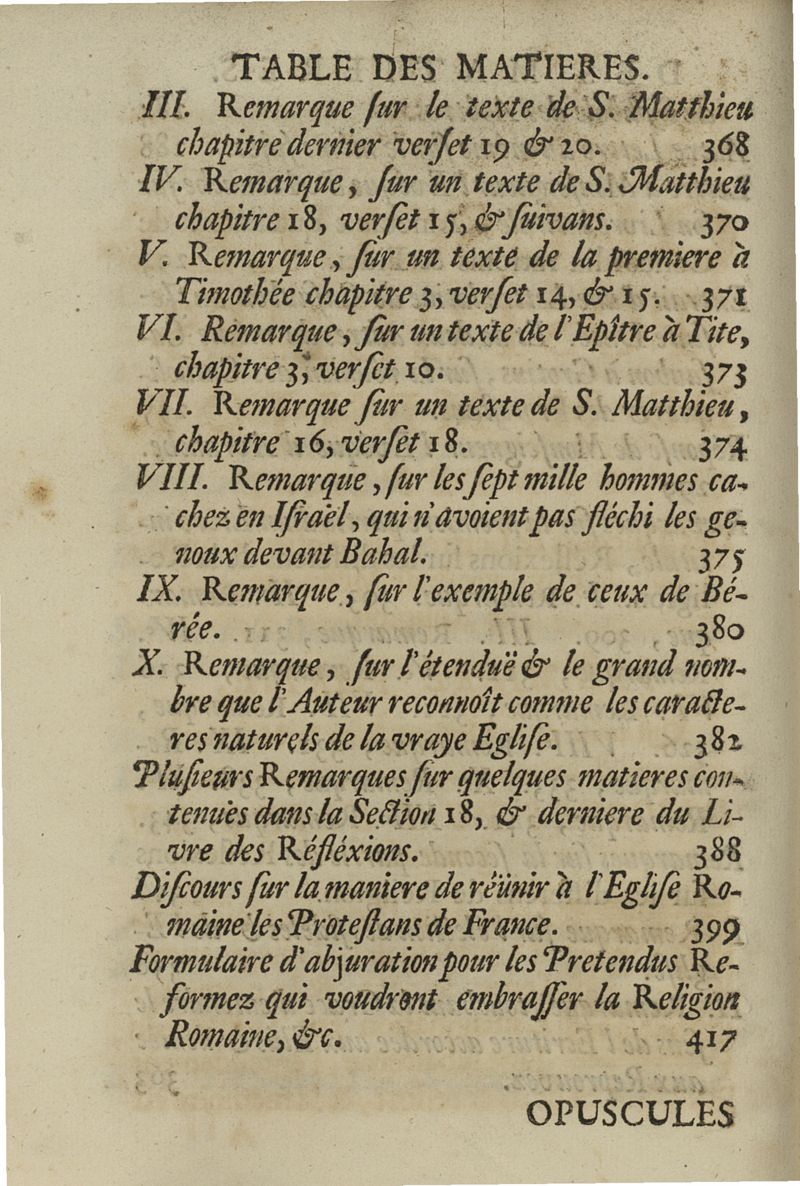 TABLE DES MATIERES.
III. Remarque ſur le texte de S. Matthieu
chapitre dernier verſet 19 & 20. 368
IV. Remarque, ſur un texte de S. Matthieu
chapitre 18, verſet 15, & ſuivans. 370
V. Remarque, ſur un texte de la premiere à
Timothée chapitre 3, verſet 14, & 15. 371
VI. Remarque, ſur un texte de l'Epître à Tite,
chapitre 3, verſet 10. 373
VII. Remarque ſur un texte de S. Matthieu,
chapitre 16, verſet 18. 374
VIII. Remarque, ſur les ſept mille hommes ca-
chez en Iſraël, qui n'avoient pas fléchi les ge-
noux devant Bahal. 375
IX. Remarque, ſur l'exemple de ceux de Bé-
rée. 380
X. Remarque, ſur l'étenduë & le grand nom-
bre que l'Auteur reconnoît comme les caracte-
res naturels de la vraye Egliſe. 382
Pluſieurs Remarques ſur quelques matieres con-
tenuës dans la Section 18, & derniere du Li-
vre des Réfléxions. 388
Diſcours ſur la maniere de réünir à l'Egliſe Ro-
maine les Proteſtans de France. 399
Formulaire d'abjuration pour les Pretendus Re-
formez qui voudront embraſſer la Religion
Romaine, &c. 417
OPUSCULES